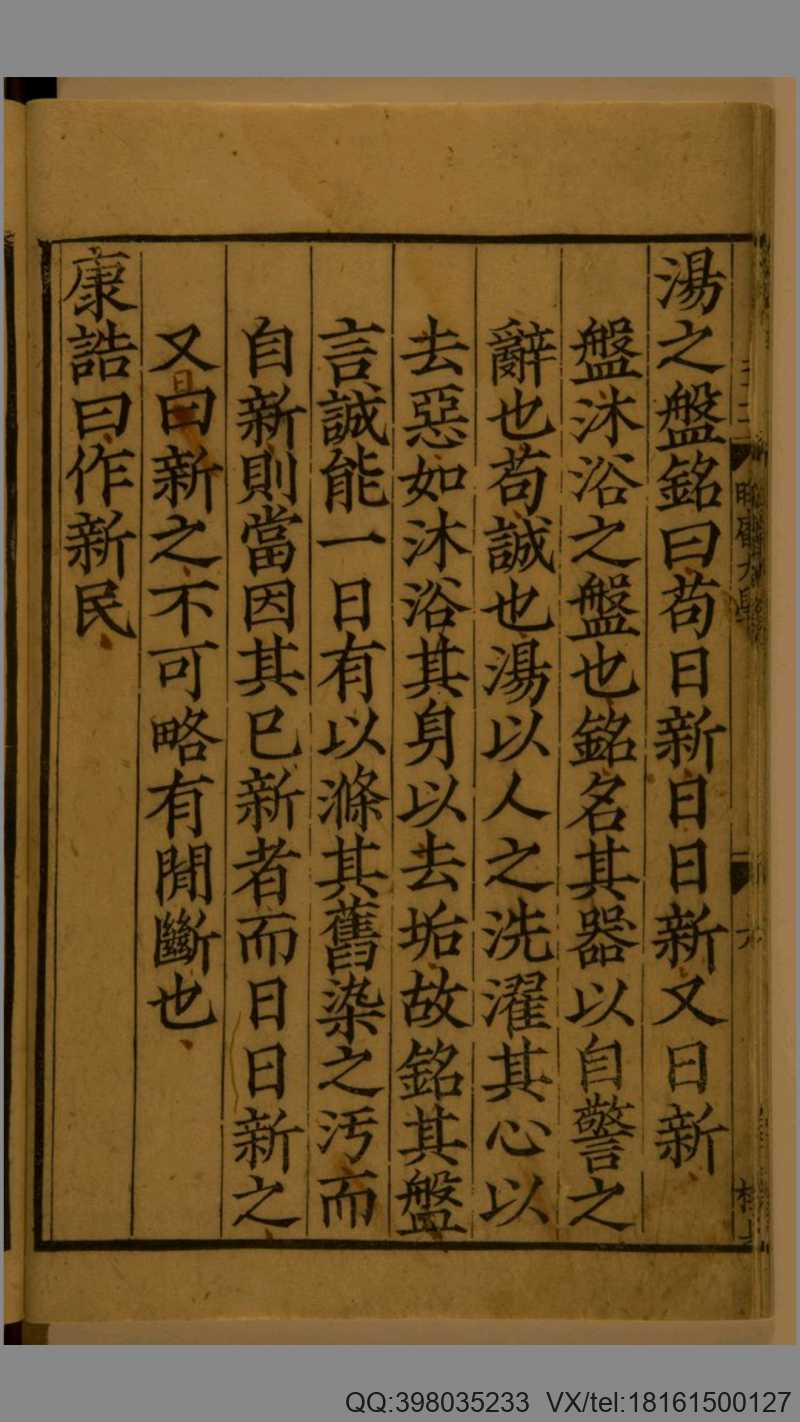 湯之盤銘曰苟日新日日新又日新
盤沐浴之盤也銘名其器以自警之
辭也苟誠也湯以人之洗濯其心以
去惡如沐浴其身以去垢故銘其盤
言誠能一日有以滌其舊染之汚而
自新則當因其已新者而日日新之
又曰新之不可略有閒斷也
康誥曰作新民
QQ:398035233 VX/tel:18161500127